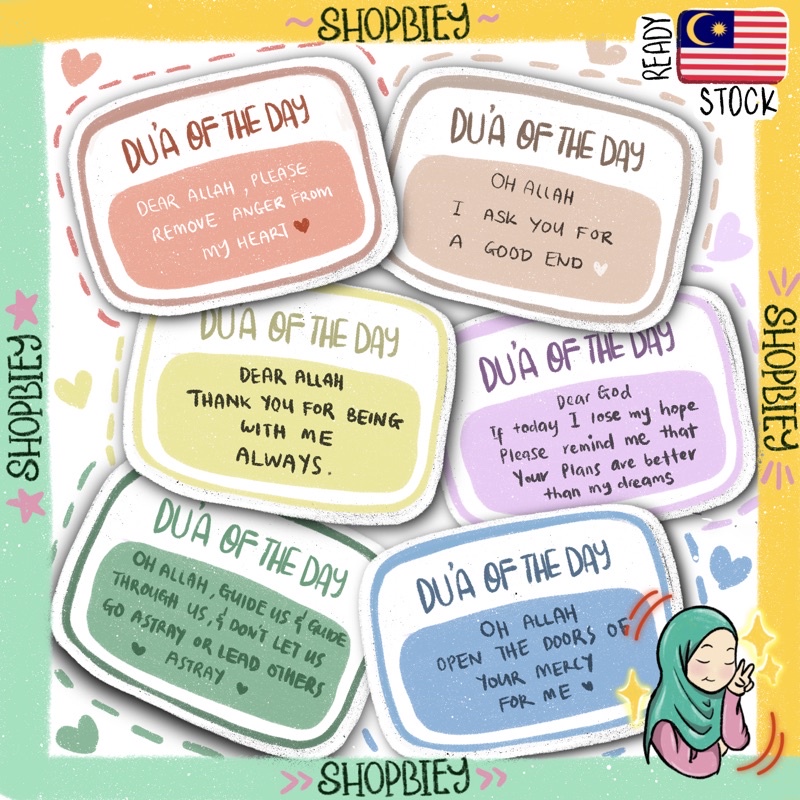 ~SHOPBIEY~
READY
STOCK
DU'A OF THE DAY
DEAR ALLAH, PLEASE
REMOVE ANGER FROM
MY HEART
DU'A OF THE DAY
OH ALLAH
I ASK YOU FOR
A GOOD END
DU'A OF THE DAY
DEAR ALLAH
THANK YOU FOR BEING
WITH ME
ALWAYS.
DU'A OF THE DAY
Dear God
If today I lose my hope
Please remind me that
Your Plans are better
than my dreams
DU'A OF THE DAY
OH ALLAH, GUIDE US & GUIDE
THROUGH US, & DON'T LET US
GO ASTRAY OR LEAD OTHERS
ASTRAY
DU'A OF THE DAY
OH ALLAH
OPEN THE DOORS OF
YOUR MERCY
FOR ME
SHOPBIEY
SHOPBIEY
>>SHOPBIEY>>